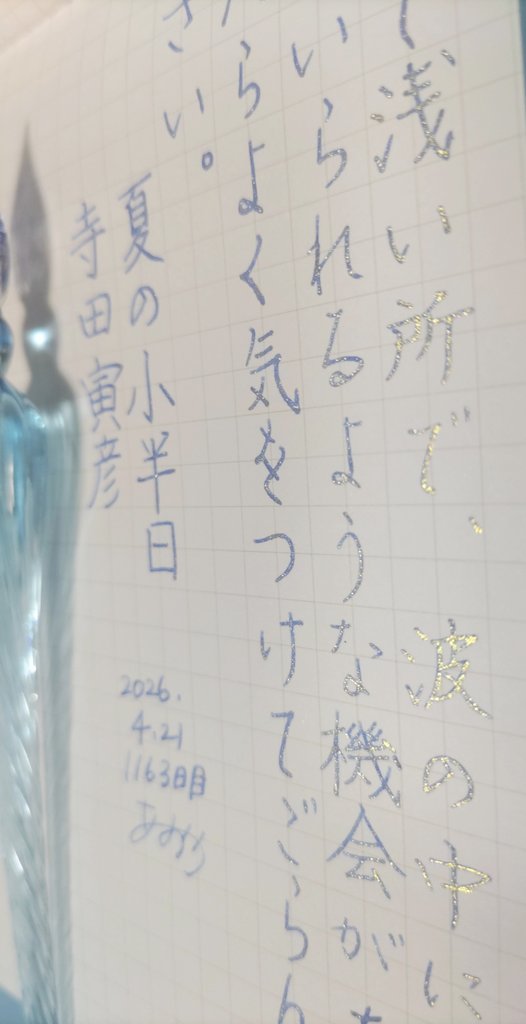 浅い所で、波の中に
いられるような機会が
らよく気をつけてごらん
さい。
夏の小半日
寺田寅彦
2026.
4.21
1163日目